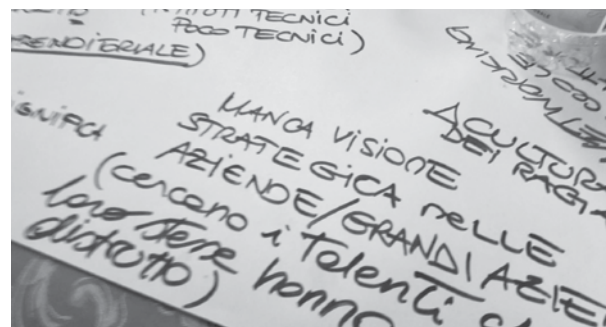 (ISTITUTI TECNICI
POCO TECNICI)
RENDITERIALE)
MANCA VISIONE
STRATEGICA NELLE
AZIENDE/GRANDI AZIE
(cercano i talenti
loro stesse hanno
distrutto)
ACULTURA
DEI RAGI
NETWORKING